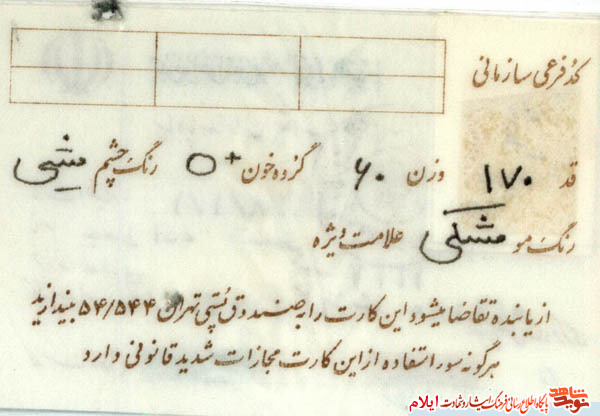 کد فرعی سازمانی
قد ۱۷۰ وزن ۶۰ گروه خون O+ رنگ چشم میشی
رنگ مو مشکی علامت ویژه
از یابنده تقاضا میشود این کارت را به صندوق پستی تهران ۵۴/۵۴۴ بیندازید
هرگونه سوء استفاده از این کارت مجازات شدید قانونی دارد
نوید شاهد پایگاه اطلاع رسانی فرهنگ ایثار و شهادت ایلام